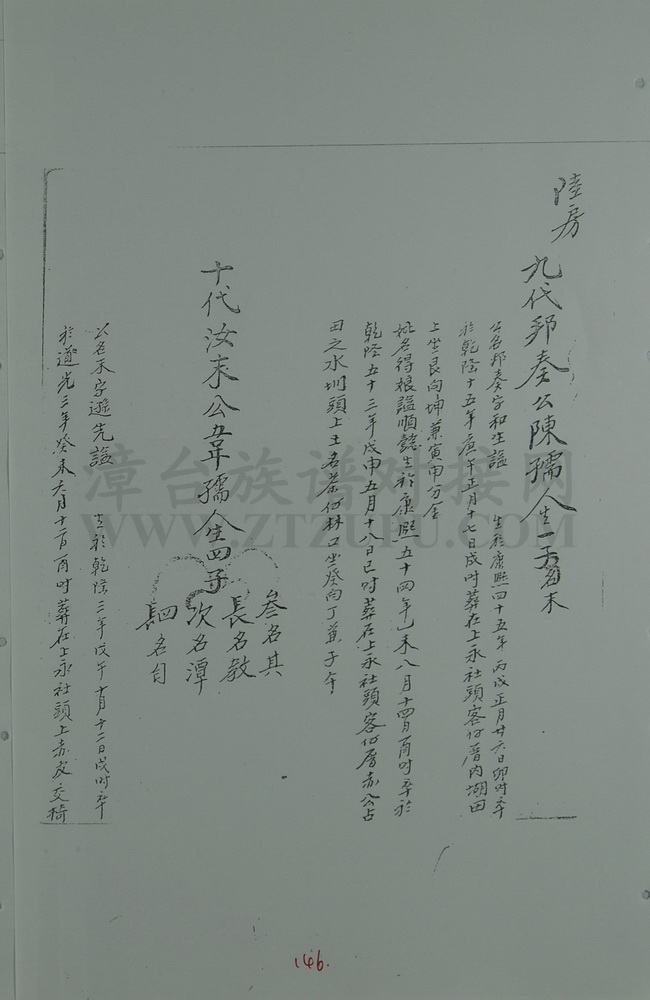 陸房
九代邦奏公陳孺人生一子名末
公名邦奏字和生諡 生於康熙四十五年丙戌正月廿六日卯时卒
於乾隆十五年庚午正月十七日戌时葬在上永社頭客仔厝内坳田
上坐艮向坤兼寅申分金
妣名得根諡順懿生於康熙五十四年乙未八月十四日酉时卒於
乾隆五十三年戊申五月十八日巳时葬在上永社頭客仔厝赤公占
田之水圳頭上土名茶仔林口坐癸向丁兼子午
十代汝末公韋孺人生四子
叁名其
長名教
次名潭
四名自
公名末字遜先諡 生於乾隆三年戊午十月十二日戌时卒
於道光三年癸未六月十二日酉时葬在上永社頭上赤皮交椅
漳台族谱对接网
WWW.ZTZUPU.COM
146.